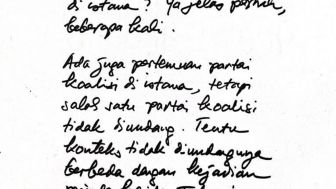 di istana? Ya jelas pernah,
beberapa kali.
Ada juga pertemuan partai
koalisi di istana, tetapi
salah satu partai koalisi
tidak diundang. Tentu
konteks tidak diundangnya
berbeda dengan kejadian